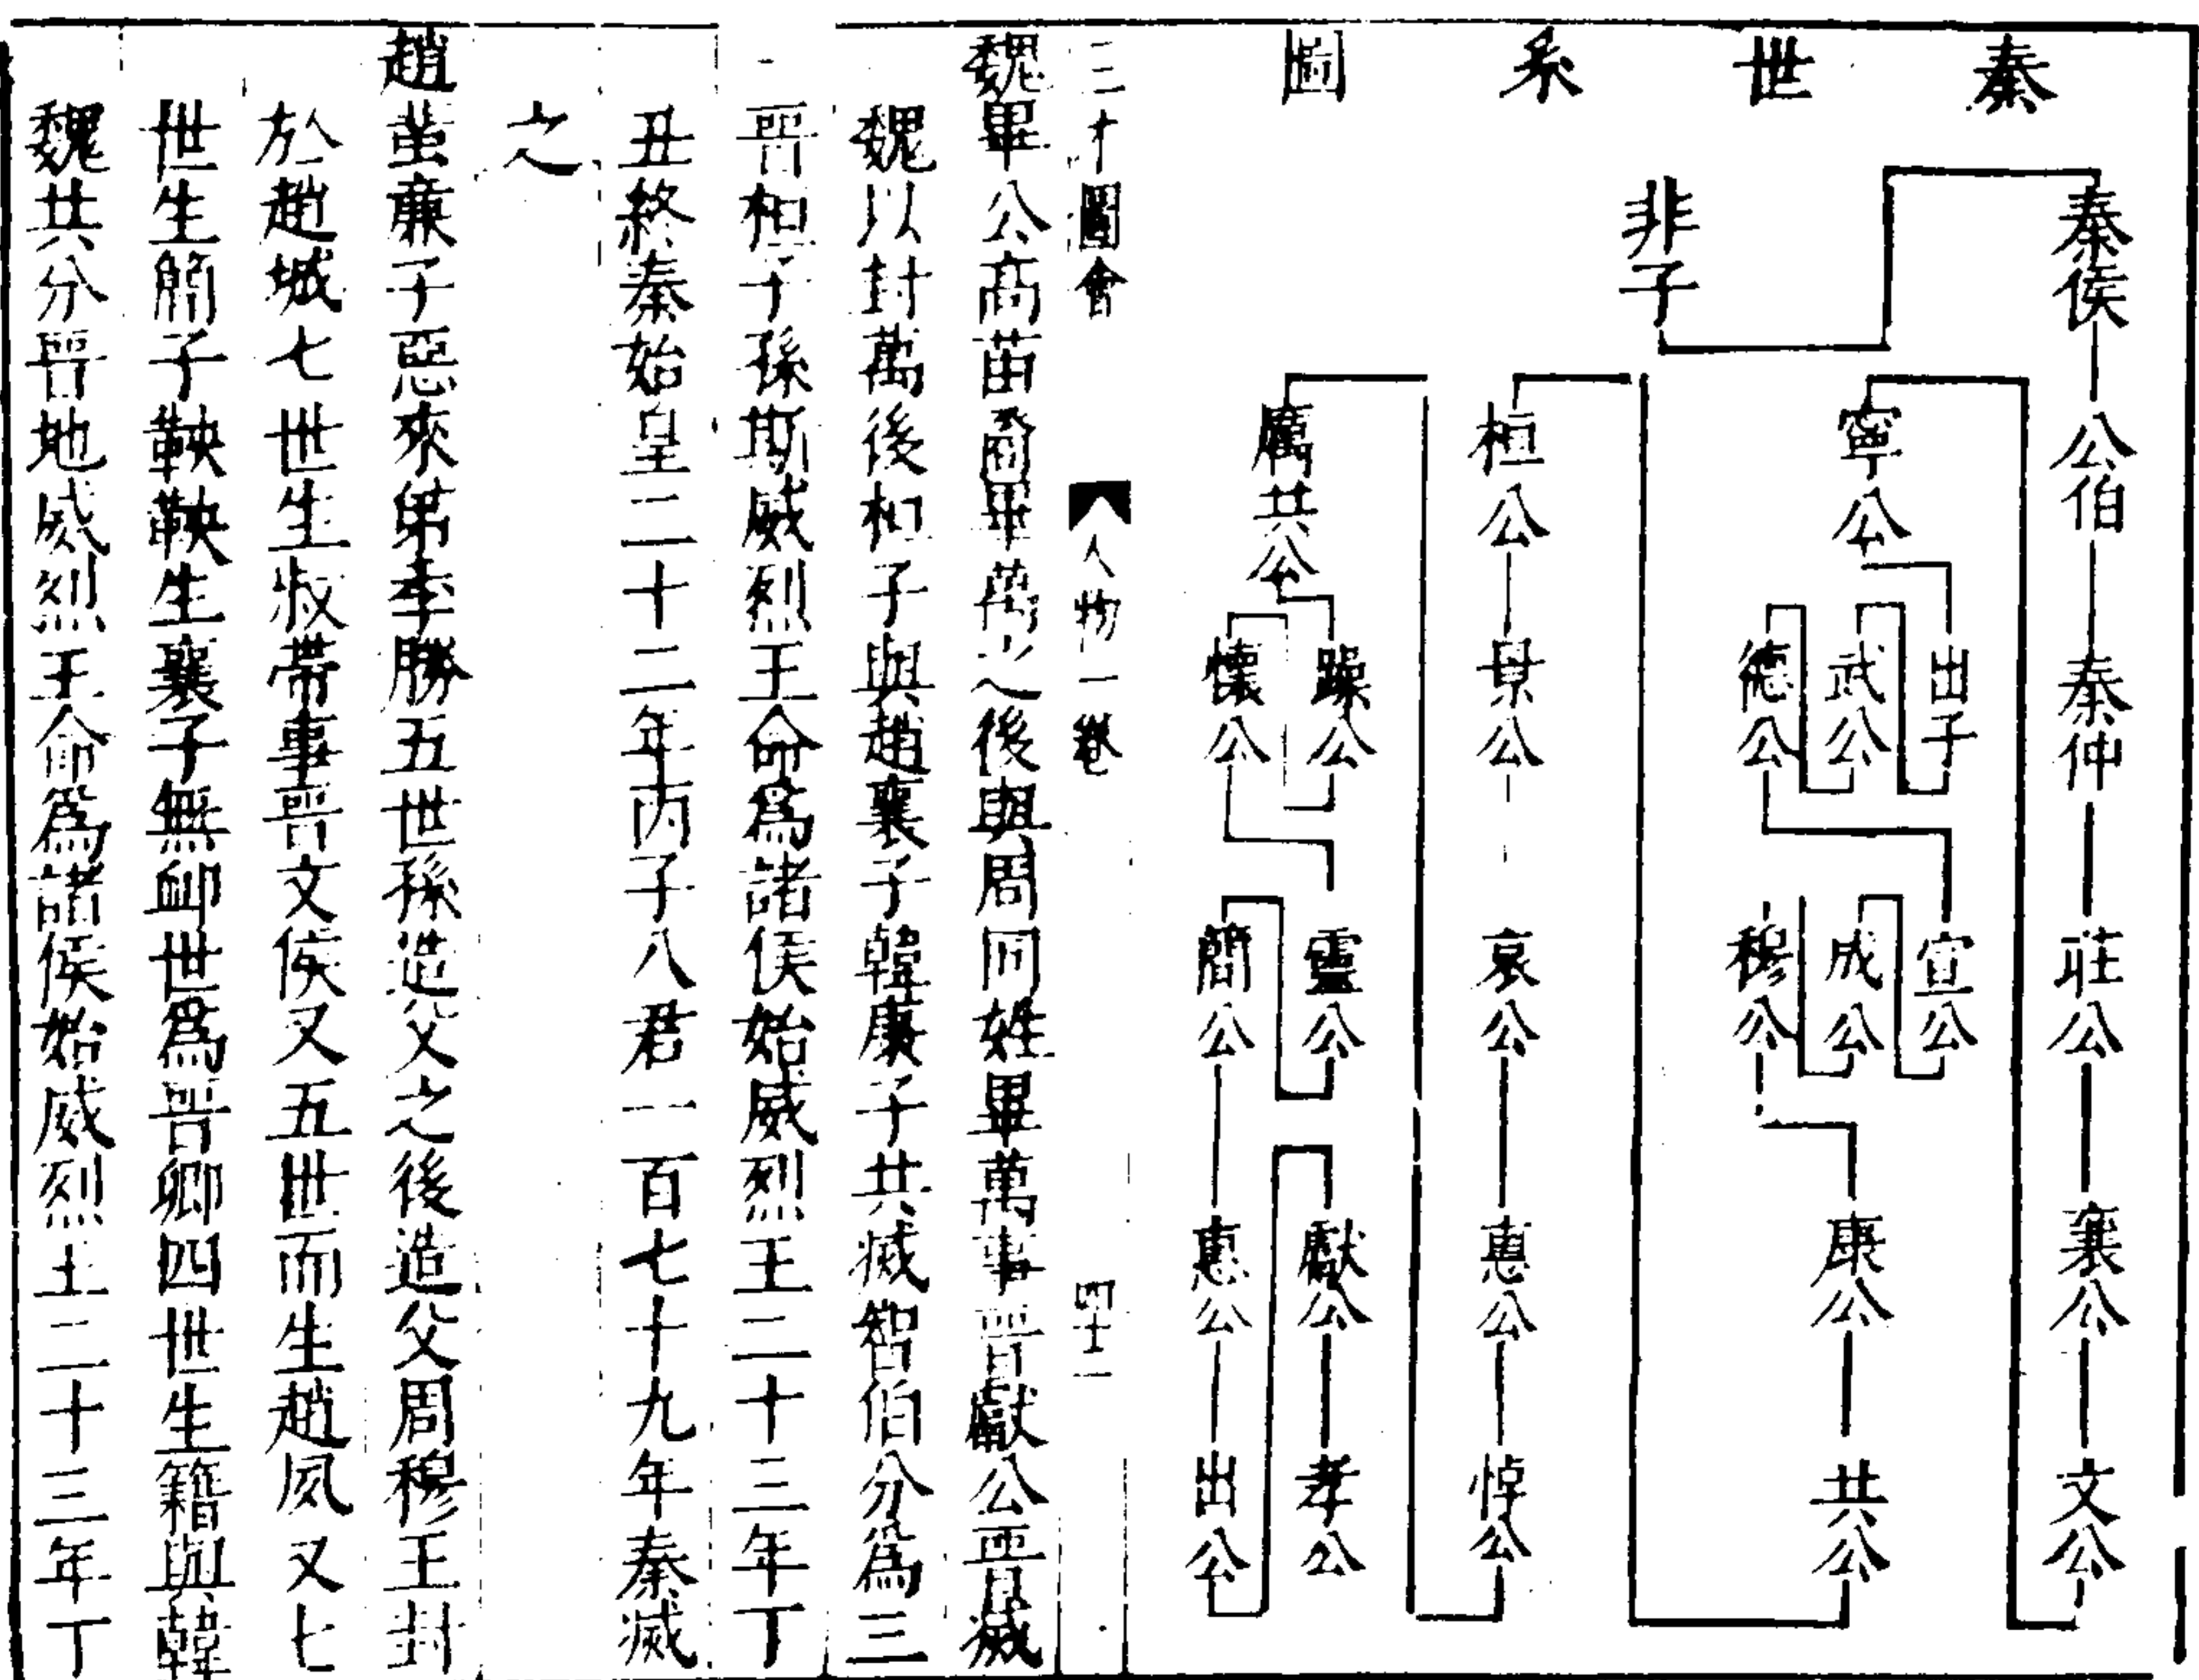 秦世系圖
非子
秦侯 公伯 秦仲 莊公 襄公 文公
寧公
出子
武公
德公
宣公
成公
穆公
康公 共公
桓公 景公 哀公 惠公 悼公
厲共公
躁公
懷公
靈公
簡公 惠公 出公
獻公 孝公
三才圖會 人物一卷 四十一
魏畢公高苗裔畢萬之後與周同姓畢萬事晉獻公晉滅
魏以封萬後桓子與趙襄子韓康子共滅智伯分為三
晉桓子孫斯威烈王命為諸侯始威烈王二十三年丁
丑終秦始皇二十二年丙子八君一百七十九年秦滅
之
趙蜚廉子惡來弟季勝五世孫造父之後造父周穆王封
於趙城七世生叔帶事晉文侯又五世而生趙夙又七
世生簡子鞅鞅生襄子無卹世為晉卿四世生籍與韓
魏共分晉地威烈王命為諸侯始威烈王二十三年丁